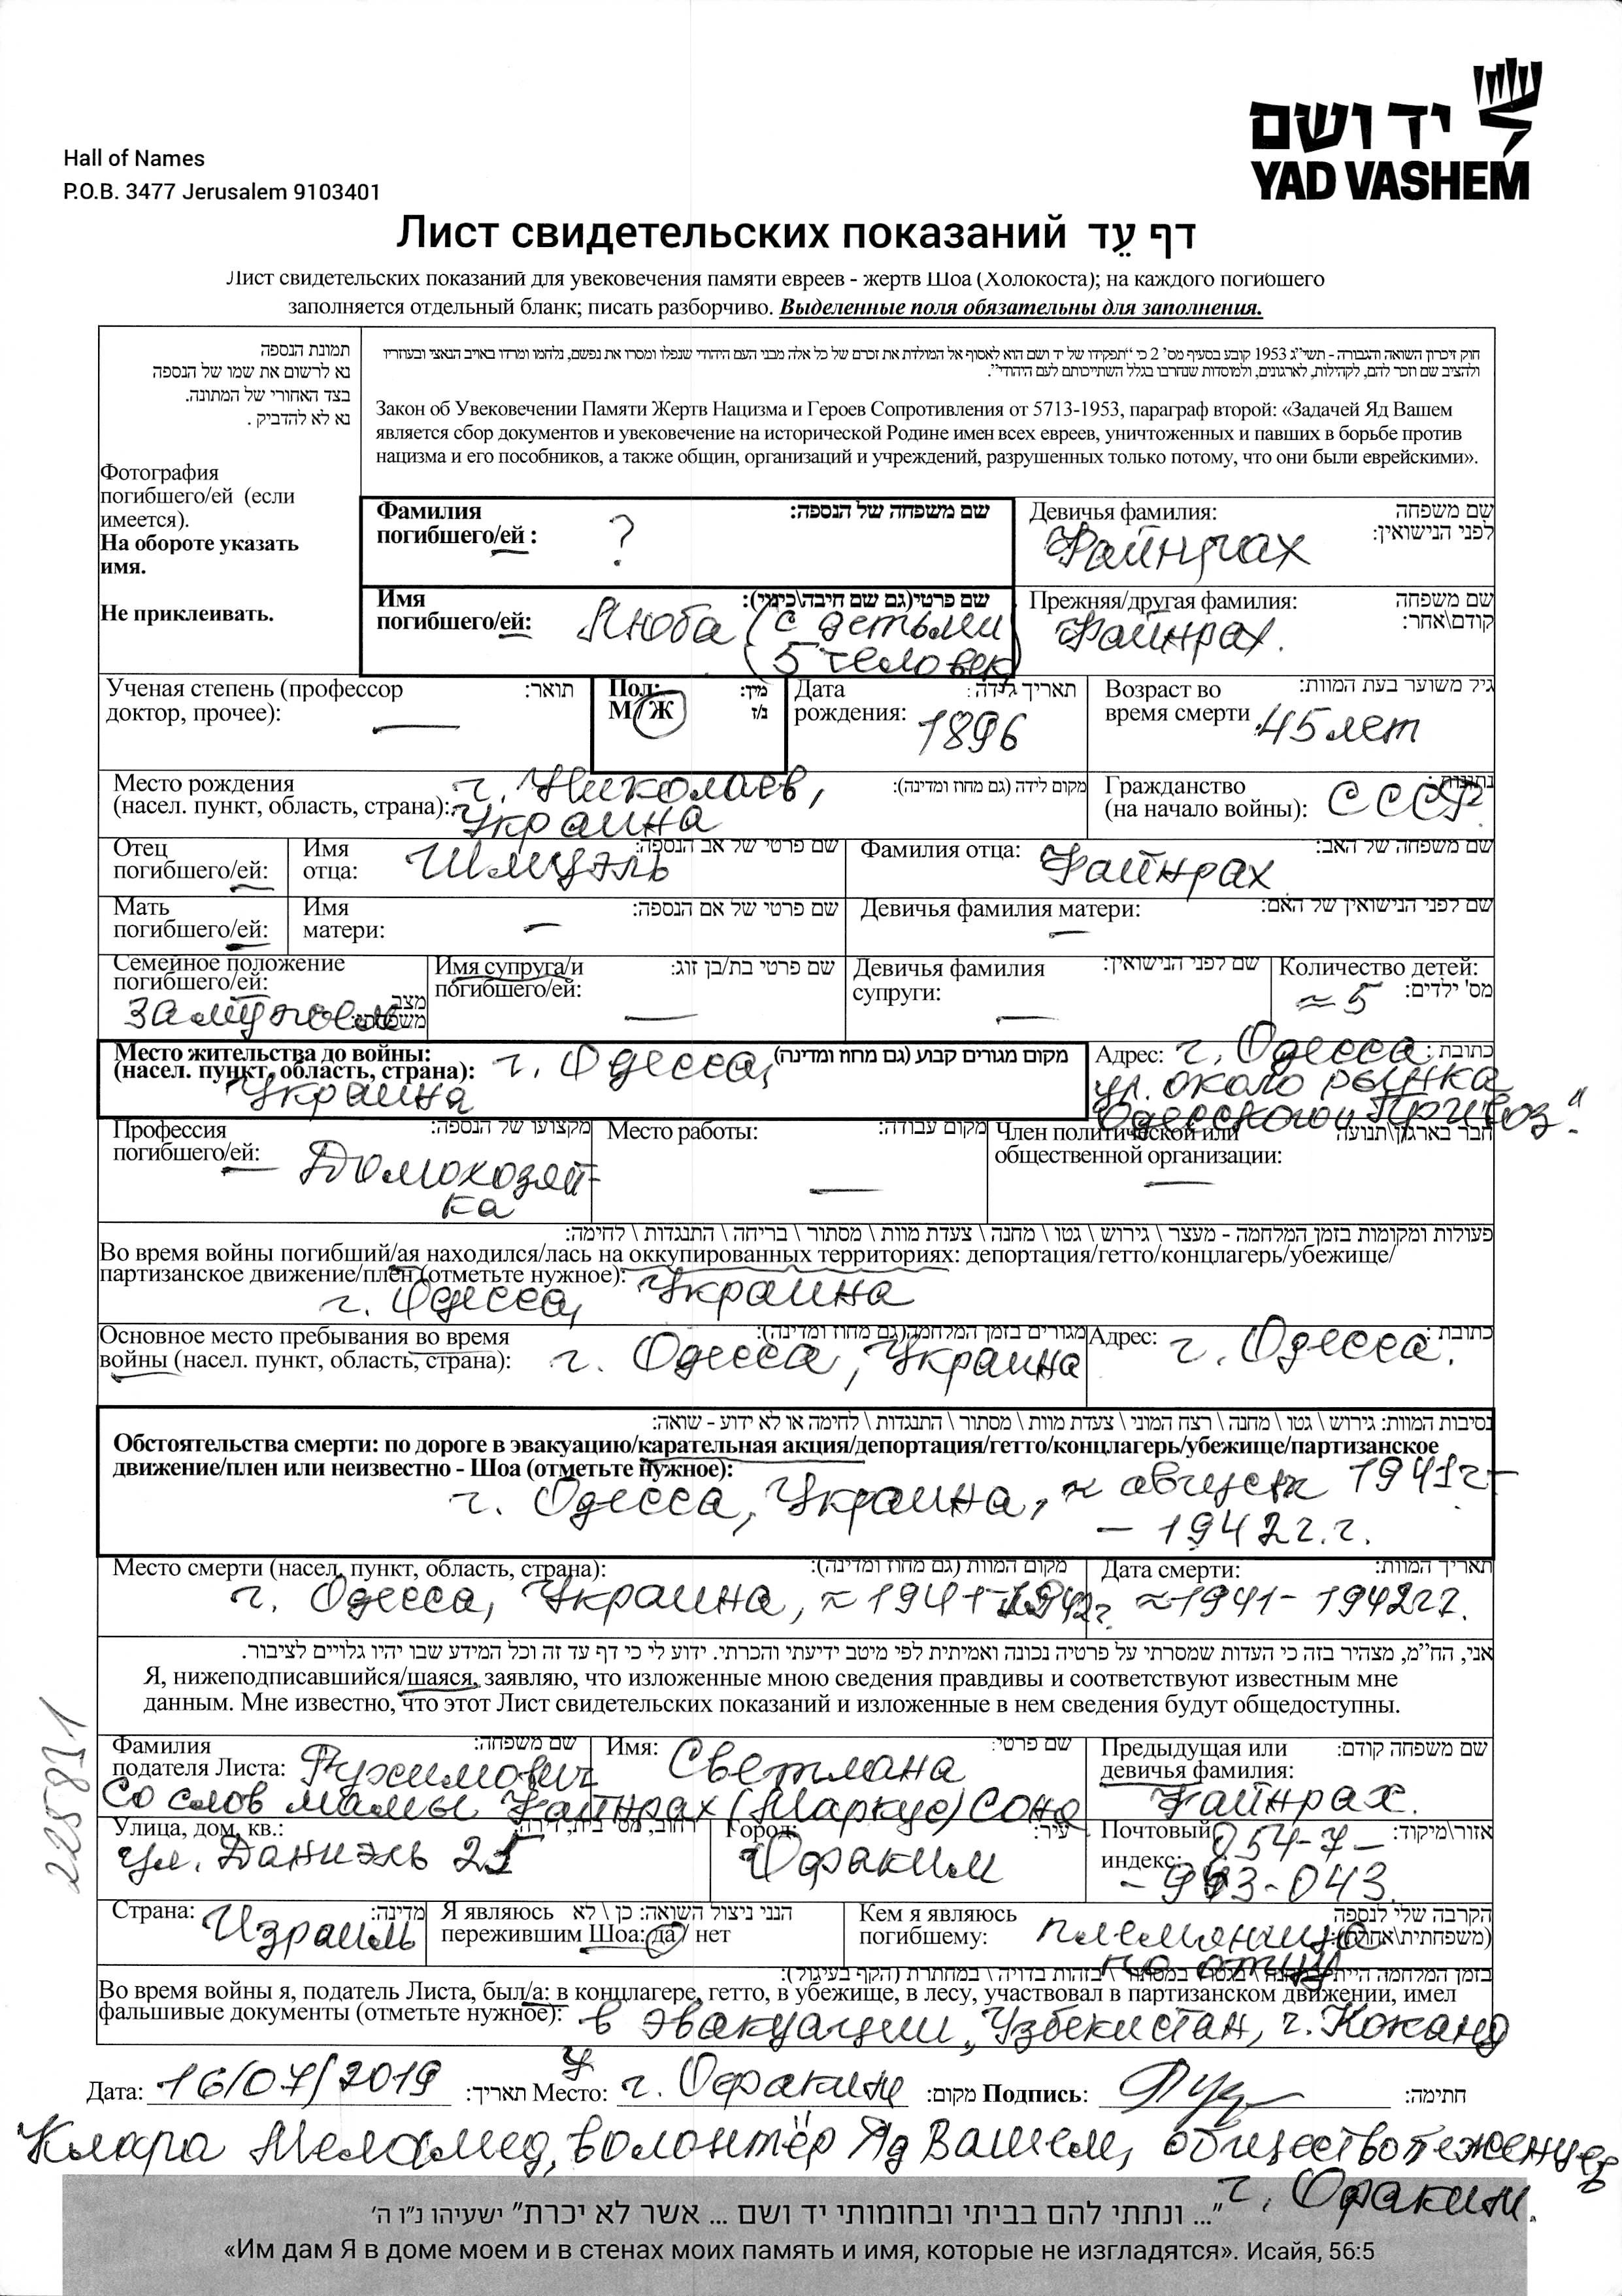 Hall of Names
P.O.B. 3477 Jerusalem 9103401
יד ושם
YAD VASHEM
Лист свидетельских показаний דף עֵד
Лист свидетельских показаний для увековечения памяти евреев - жертв Шоа (Холокоста); на каждого погибшего
заполняется отдельный бланк; писать разборчиво. Выделенные поля обязательны для заполнения.
תמונת הנספה
נא לרשום את שמו של הנספה
בצד האחורי של המתונה.
נא לא להדביק .
Фотография
погибшего/ей (если
имеется).
На обороте указать
имя.
Не приклеивать.
חוק זיכרון השואה והגבורה - תשי"ג 1953 קובע בסעיף מס' 2 כי "תפקידו של יד ושם הוא לאסוף אל המולדת את זכרם של כל אלה מבני העם היהודי שנפלו ומסרו את נפשם, נלחמו ומרדו באויב הנאצי ובעוזריו
ולהציב שם וזכר להם, לקהילות, לארגונים, ולמוסדות שנחרבו בגלל השתייכותם לעם היהודי".
Закон об Увековечении Памяти Жертв Нацизма и Героев Сопротивления от 5713-1953, параграф второй: «Задачей Яд Вашем
является сбор документов и увековечение на исторической Родине имен всех евреев, уничтоженных и павших в борьбе против
нацизма и его пособников, а также общин, организаций и учреждений, разрушенных только потому, что они были еврейскими».
Фамилия погибшего/ей : ? שם משפחה של הנספה:
Девичья фамилия: Файнрах שם משפחה לפני הנישואין:
Имя погибшего/ей: Люба (с детьми שם פרטי(גם שם חיבה\כינוי):
(5 человек)
Прежняя/другая фамилия: Файнрах. שם משפחה קודם\אחר:
Ученая степень (профессор доктор, прочее): — תואר:
Пол: М/Ж מין: ז/נ
Дата рождения: 1896 תאריך לידה:
Возраст во время смерти 45 лет גיל משוער בעת המוות:
Место рождения (насел. пункт, область, страна): г. Николаев, מקום לידה (גם מחוז ומדינה):
Украина
Гражданство (на начало войны): СССР נתינות:
Отец погибшего/ей: Имя отца: Шмуэль שם פרטי של אב הנספה:
Фамилия отца: Файнрах שם משפחה של האב:
Мать погибшего/ей: Имя матери: — שם פרטי של אם הנספה:
Девичья фамилия матери: — שם לפני הנישואין של האם:
Семейное положение погибшего/ей: замужем מצב משפחתי:
Имя супруга/и погибшего/ей: — שם פרטי בת/בן זוג:
Девичья фамилия супруги: — שם לפני הנישואין:
Количество детей: ≈ 5 מס' ילדים:
Место жительства до войны: (насел. пункт, область, страна): г. Одесса, מקום מגורים קבוע (גם מחוז ומדינה)
Украина
Адрес: г. Одесса כתובת :
ул. около рынка
Одесского „Привоз".
Профессия погибшего/ей: Домохозяй- מקצועו של הנספה:
ка
Место работы: — מקום עבודה:
Член политической или общественной организации: — חבר בארגון\תנועה
פעולות ומקומות בזמן המלחמה - מעצר \ גירוש \ גטו \ מחנה \ צעדת מוות \ מסתור \ בריחה \ התנגדות \ לחימה:
Во время войны погибший/ая находился/лась на оккупированных территориях: депортация/гетто/концлагерь/убежище/
партизанское движение/плен (отметьте нужное): Украина
г. Одесса,
Основное место пребывания во время войны (насел. пункт, область, страна): г. Одесса, Украина מגורים בזמן המלחמה(גם מחוז ומדינה):
Адрес: г. Одесса. כתובת :
נסיבות המוות: גירוש \ גטו \ מחנה \ רצח המוני \ צעדת מוות \ מסתור \ התנגדות \ לחימה או לא ידוע - שואה:
Обстоятельства смерти: по дороге в эвакуацию/карательная акция/депортация/гетто/концлагерь/убежище/партизанское
движение/плен или неизвестно - Шоа (отметьте нужное):
г. Одесса, Украина, ≈ август 1941г –
– 1942 г.г.
Место смерти (насел. пункт, область, страна): מקום המוות (גם מחוז ומדינה):
г. Одесса, Украина, ≈ 1941-1942г
Дата смерти: תאריך המוות:
≈1941- 1942гг.
אני, הח"מ, מצהיר בזה כי העדות שמסרתי על פרטיה נכונה ואמיתית לפי מיטב ידיעתי והכרתי. ידוע לי כי דף עד זה וכל המידע שבו יהיו גלויים לציבור.
Я, нижеподписавшийся/шаяся, заявляю, что изложенные мною сведения правдивы и соответствуют известным мне
данным. Мне известно, что этот Лист свидетельских показаний и изложенные в нем сведения будут общедоступны.
Фамилия подателя Листа: Рухимович שם משפחה:
Имя: Светлана שם פרטי:
Предыдущая или девичья фамилия: Файнрах. שם משפחה קודם:
Со слов мамы Файнрах (Маркус) Соня
Улица, дом, кв.: ул. Даниэль 25 רחוב, מס' בית, דירה:
Город: Офаким עיר:
Почтовый индекс: 054-7- אזור\מיקוד:
-943-043.
Страна: Израиль מדינה:
Я являюсь пережившим Шоа: да/ нет הנני ניצול השואה: כן \ לא
Кем я являюсь погибшему: племянница הקרבה שלי לנספה (משפחתית\אחרת):
по отцу
בזמן המלחמה הייתי במחנה \ בגטו \ במסתור \ בזהות בדויה \ במחתרת (הקף בעיגול):
Во время войны я, податель Листа, был/а: в концлагере, гетто, в убежище, в лесу, участвовал в партизанском движении, имел
фальшивые документы (отметьте нужное): в эвакуации, Узбекистан, г. Коканд
Дата: 16/07/2019 תאריך: Место: г. Офаким מקום: Подпись: חתימה:
Клара Меламед, волонтёр Яд Вашем, общество беженцев
г. Офаким.
"... ונתתי להם בביתי ובחומותי יד ושם ... אשר לא יכרת" ישעיהו נ"ו ה'
«Им дам Я в доме моем и в стенах моих память и имя, которые не изгладятся». Исайя, 56:5